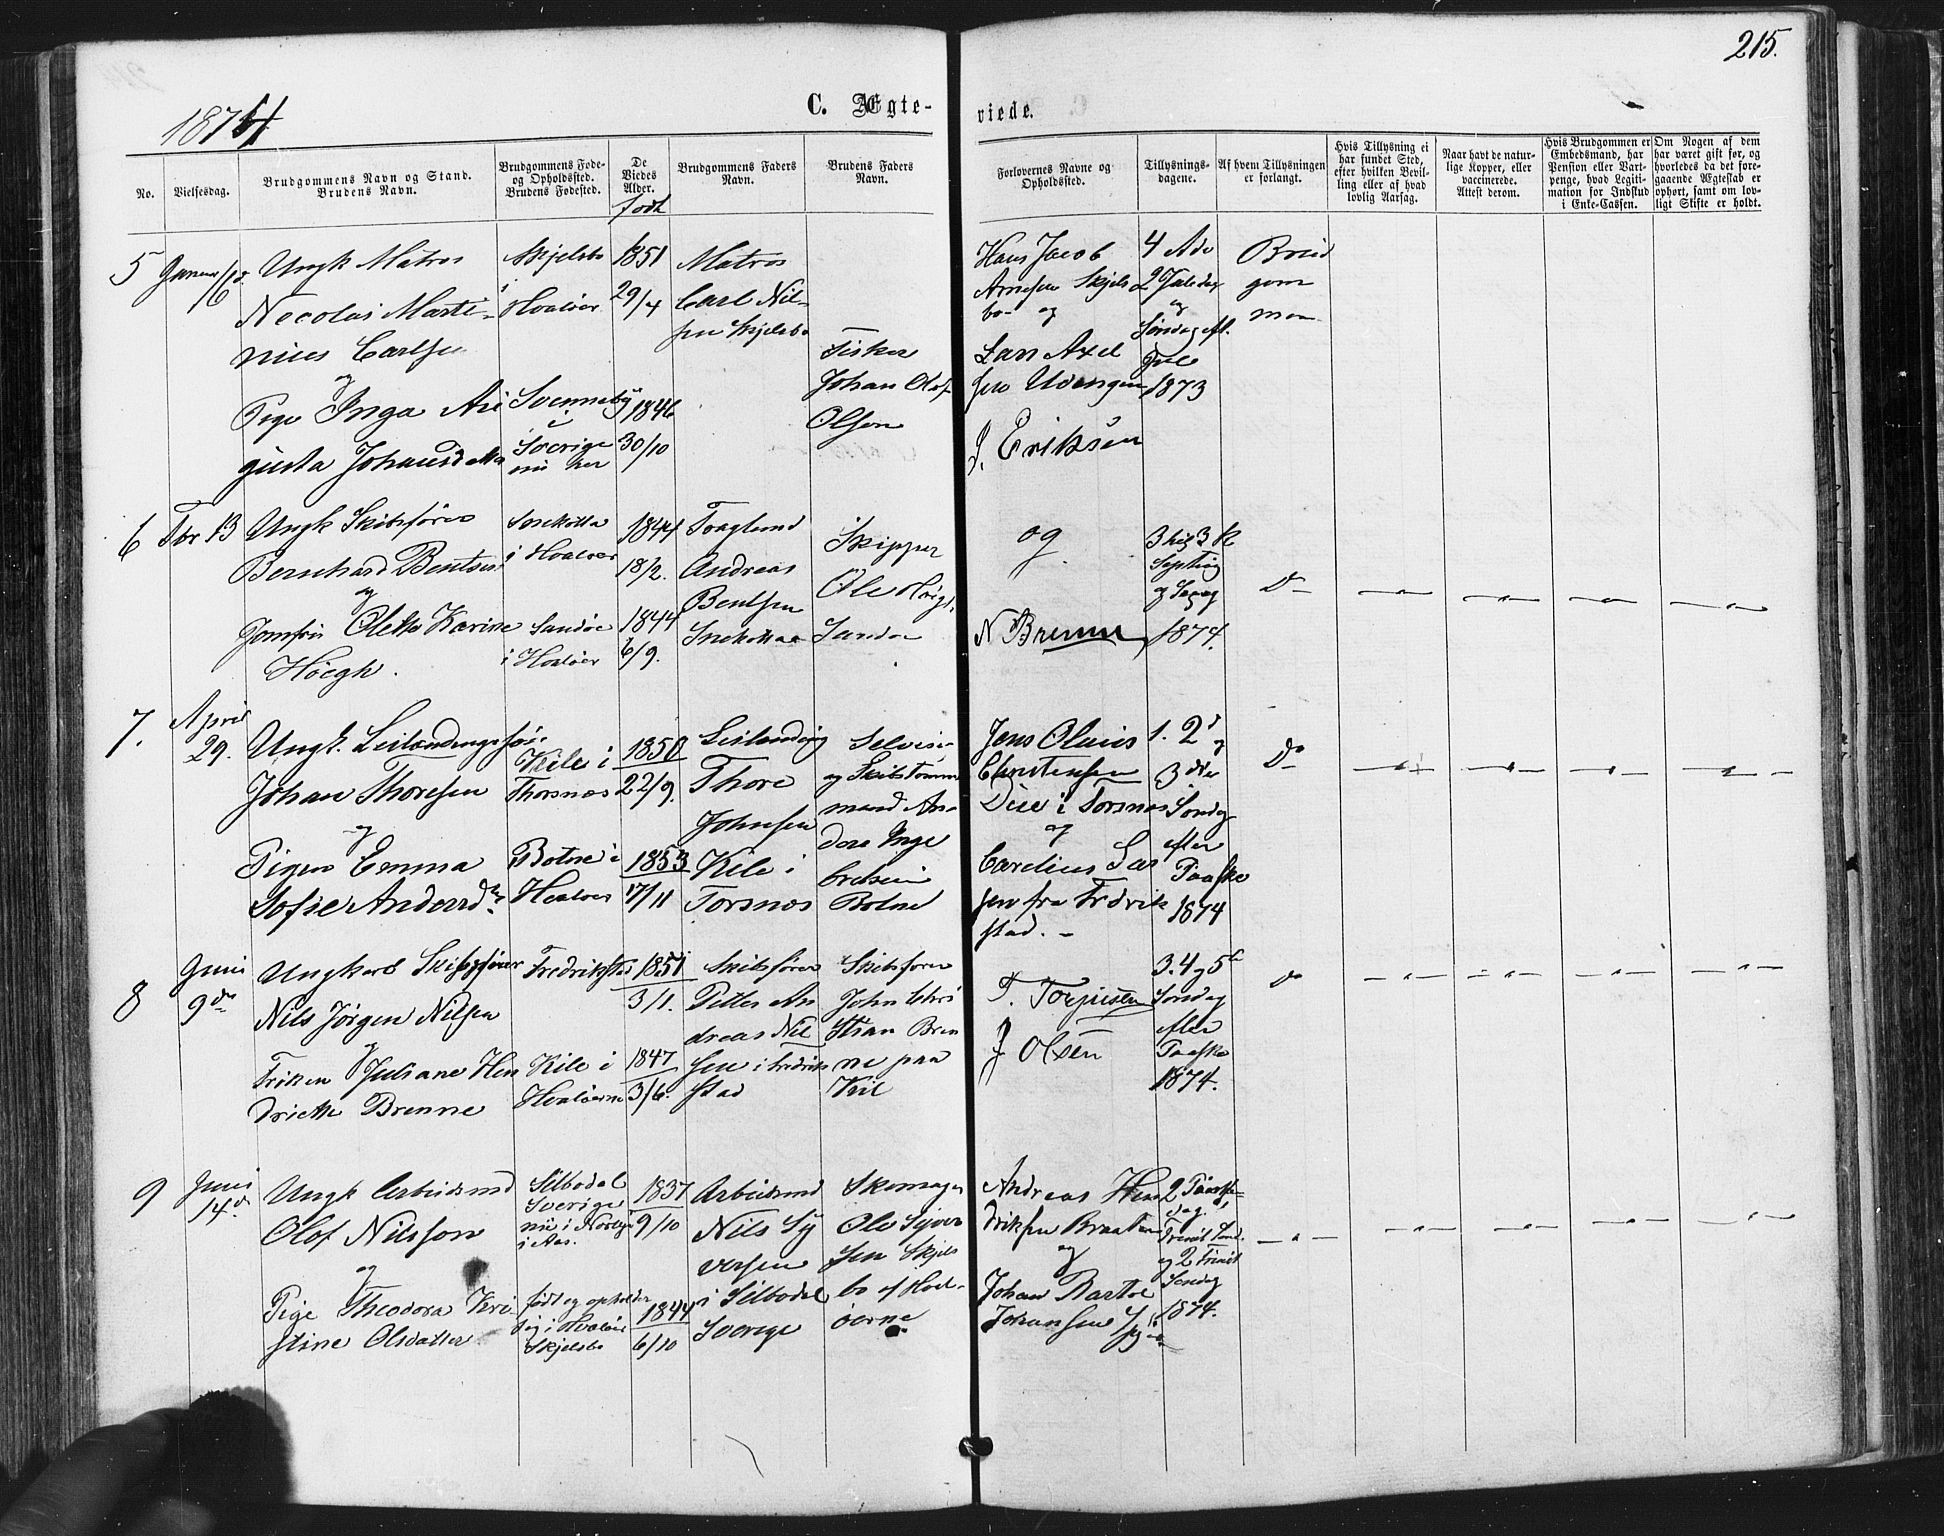 215.
1874
C. Ægte-
viede.
No.
Vielsesdag.
Brudgommens Navn og Stand.
Brudens Navn.
Brudgommens Føde-
og Opholdssted.
Brudens Fødested.
De
Viedes
Alder.
født
Brudgommens Faders
Navn.
Brudens Faders
Navn.
Forlovernes Navne og
Opholdssted.
Tillysnings-
dagene.
Af hvem Tillysningen
er forlangt.
Hvis Tillysning ei
har fundet Sted,
efter hvilken Bevil-
ling eller af hvad
lovlig Aarsag.
Naar havt de natur-
lige Kopper, eller
vaccinerede.
Attest derom.
Hvis Brudgommen er
Embedsmand, har
Pension eller Vart-
penge, hvad Legiti-
mation for Indskud
i Enke-Cassen.
Om Nogen af dem
har været gift før, og
hvorledes da det fore-
gaaende Ægteskab er
ophørt, samt om lov-
ligt Skifte er holdt.
5
Ungk Matros
Necolai Marti-
nius Carlsen
og
Pige Inga Au
gusta Johansd
Skjelsbo
i
Hvaløer
Svenneby
i
Sverige
nu her
1851
29/4
1846
30/10
Matros
Carl Nil-
sen Skjelsbo
Fisker
Johan Olof
Olsen
Hans Jacob
Arnesen Skjels
bo og
Lars Axel
sen Udengen
J. Eriksen
4 Adv
2 Juledag
og
Søndag efl.
Jule
1873
Brud
gom
men
6
Fbr 13
Ungk Skibsfører
Bernhard Bentsen
og
Jomfru Olette Karine
Høegh.
i Hvaløer
Sandøe
i Hvaløer
1844
18/2.
1844
6/9.
Andreas
Bentsen
Skipper
Ole Høigh
Sandø
og
N Brenne
1874.
Do
7.
April
29.
Ungk. Leilændings søn
Johan Thoresen
og
Pigen Emma
Sofie Andersdtr
Kile i
Thorsnæs
Botne i
Hvaløer
1850
22/9.
1853
17/11
Leilænding
Thore
Johnsen
Kile i
Torsnæs
Selveier
og Skibstømm
mand An-
ders Inge
bretsen
Botne
Jens Olaus
Christensen
i Torsnæs
og
Carelius Lar
sen fra Fredrik
stad.
1. 2d og
3die
Søndag
efter
Paaske
1874
Do
8
Juni
9de
Ungkarl Skibsfører
Nils Jørgen Nilsen
og
Frøken Juliane Hen
driette Brenne
Fredrikstad
Kile i
Hvaløerne
1851
3/1.
1847
3/6.
Skibsfører
Petter An
dreas Nil
sen i Fredrik
stad
Skibsfører
John Chri
stian Bren
ne paa
Kiil
T. Torjusen
J Olsen
3. 4 og 5te
Søndag
efter
Paaske
1874.
do
9
Juni
14de
Ungk Arbeidsmd
Olof Nilsson
og
Pige Theodora Kri
stine Olsdatter
Silbodal
Sverige
nu i Norge
i Aas.
født og opholder
sig i Hvaløer
Skjelsbo
1837
9/10
1844
6/10
Arbeidsmd
Nils Sy
versen
i Silbodal
Sverige
Skomager
Ole Syver
sen Skjels
bo af Hval-
øerne
Andreas Hen
driksen Braaten
og
Johan Bastoe
Johansen
2 Paaske-
dag.
Trinit Sønd.
og 2 Trinit
Søndag
1874.